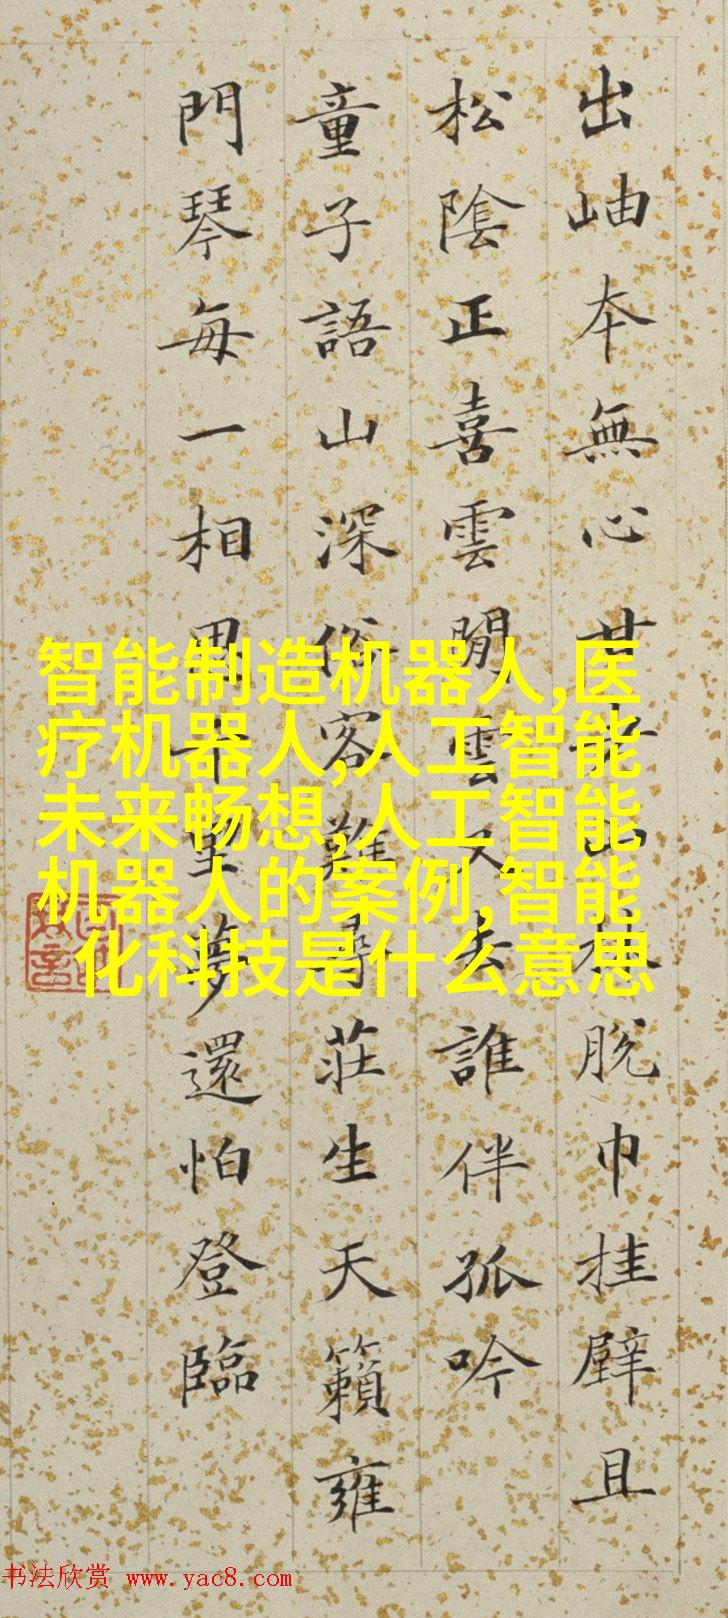 出岫本無心甘老山林脫巾挂壁且
松陰正喜雲閒雲又去誰伴孤吟
童子語山深俗客難尋莊生天籟雍
門琴每一相思千里夢還怕登臨
智能制造机器人,医
疗机器人,人工智能
未来畅想,人工智能
机器人的案例,智能
化科技是什么意思
书法欣赏 www.yac8.com